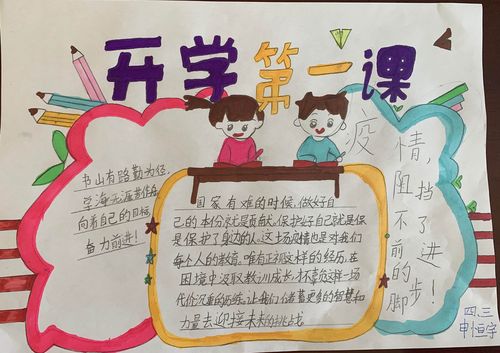 开学第一课
书山有路勤为径,
学海无涯苦作舟
向着自己的目标,
奋力前进!
国家有难的时候,做好自
己的本份就是贡献。保护好自己就是保
是保护了身边的人。这场疫情也是对我们
每个人的教育,唯有正视这样的经历,在
困境中汲取教训成长,才不辜负这样一场
代价沉重的历练,让我们借着更多的智慧和
力量去迎接未来的挑战
疫情,
阻挡
不了
前进
的脚步!
四、三
申恒宇